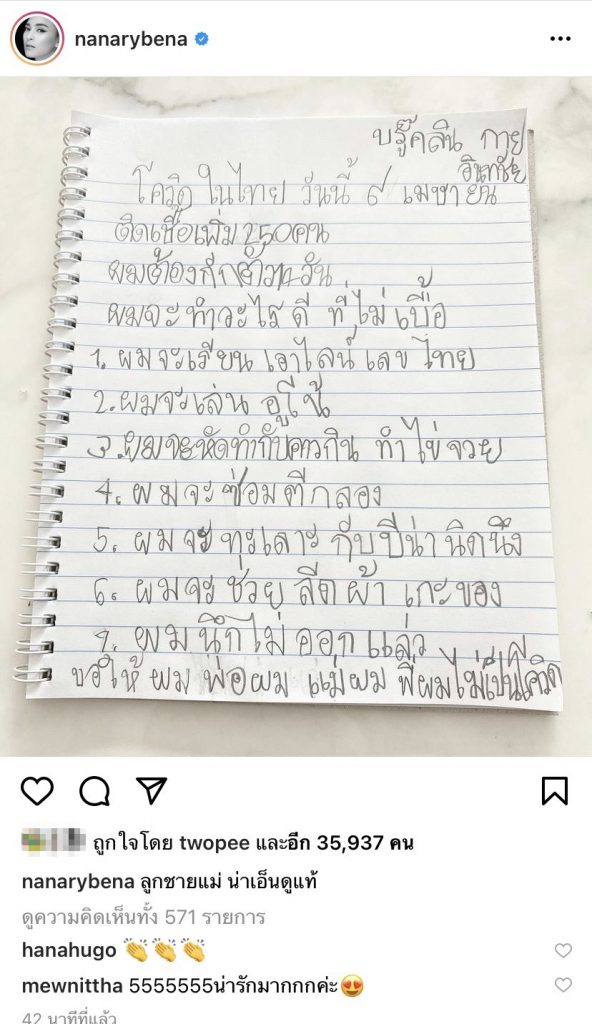 nanarybena
บรู๊คลิน กาย
อินทชัย
โควิด ในไทย วันนี้ ๙ เมษายน
ติดเชื้อเพิ่ม 250 คน
ผมต้องกักตัว 14 วัน
ผมจะ ทำวะไร ดี ที่ ไม่ เบื้อ
1. ผมจะเรียน เอาไลน์ เลข ไทย
2. ผมจะเล่น อูโน้
3. ผมจะหัดทำกับคาวกิน ทำไข่จวย
4. ผมจะ ซ่อม ตีกลอง
5. ผมจะ ทะเลาะ กับปีน่า นิดนึง
6. ผมจะ ช่วย ลีดผ้า เกะของ
7. ผมนึกไม่ออกแล่ว
ขอให้ ผม พ่อผม แม่ผม พี่ผมไม่เป็นโควิด
ถูกใจโดย twopee และอีก 35,937 คน
nanarybena ลูกชายแม่ น่าเอ็นดูแท้
ดูความคิดเห็นทั้ง 571 รายการ
hanahugo 👏👏👏
mewnittha 5555555น่ารักมากกกค่ะ😍
42 นาทีที่แล้ว